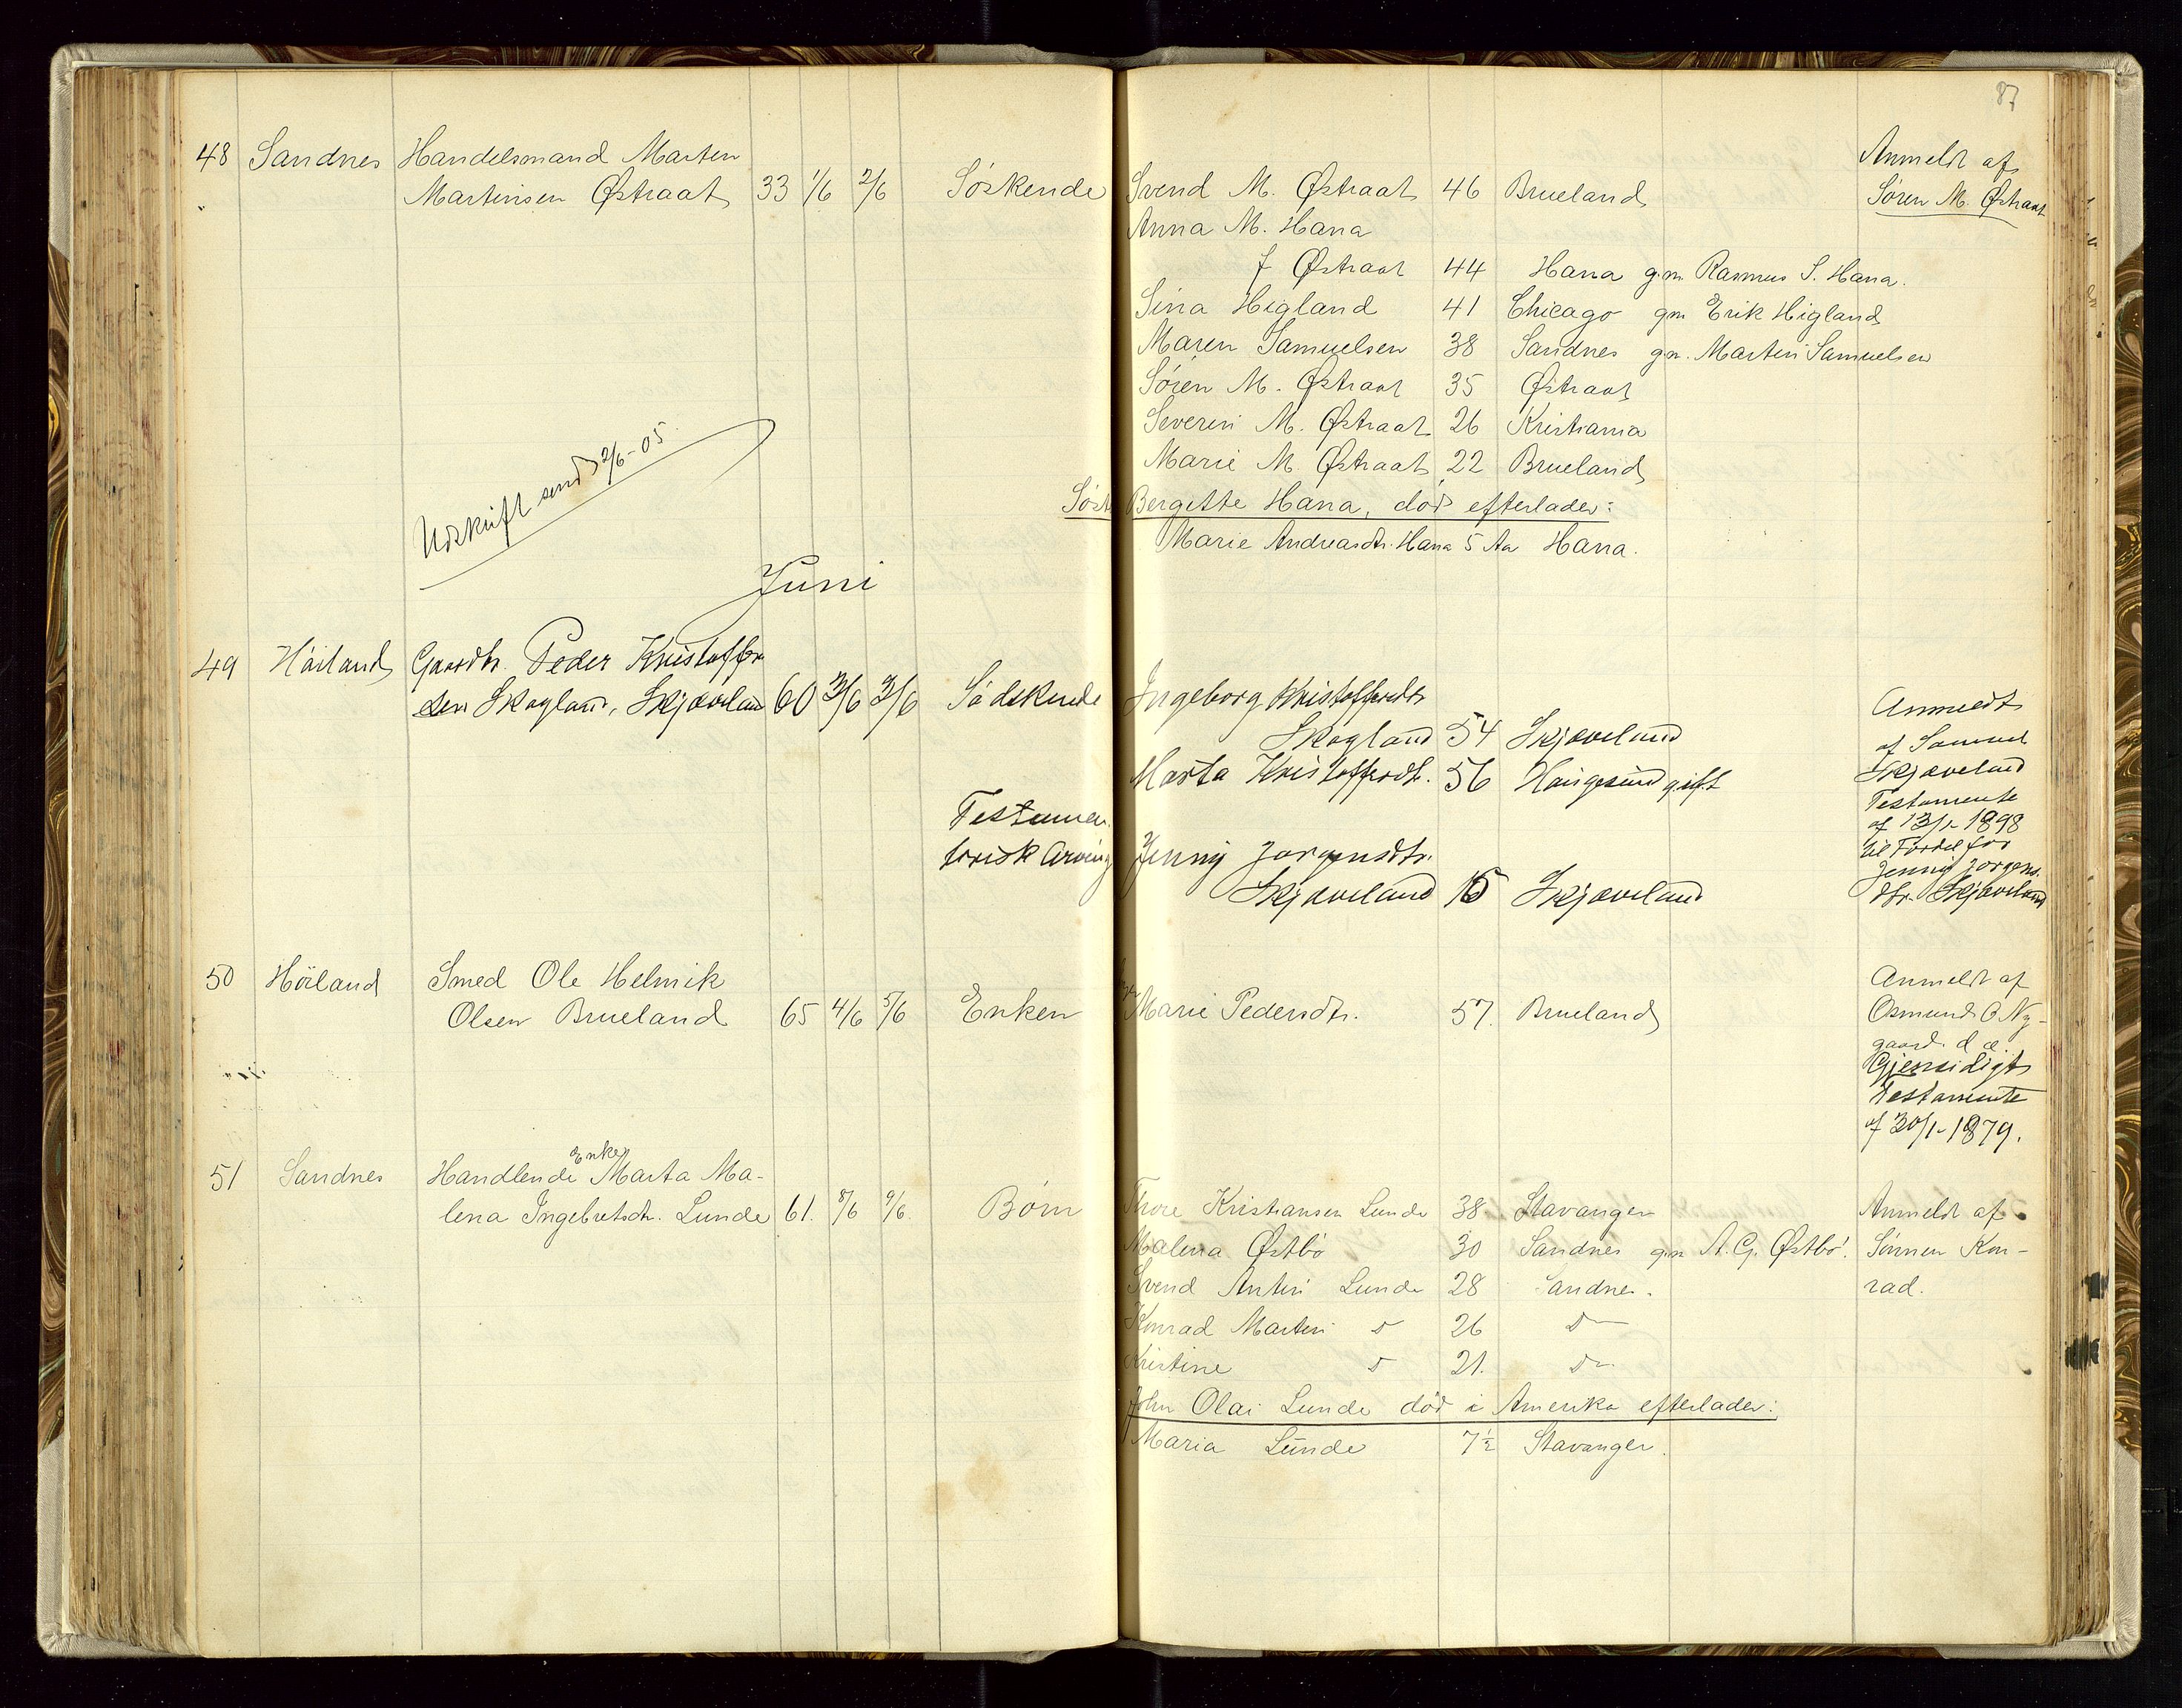 87
48 Sandnes Handelsmand Marten
Martinsen Østraat 33 1/6 2/6 Søskende
Svend M. Østraat 46 Brueland
Anna M. Hana
f Østraat 44 Hana g.m. Rasmus S. Hana.
Sina Higland 41 Chicago gm Erik Higland
Maren Samuelsen 38 Sandnes g.m. Martin Samuelsen
Søren M. Østraat 35 Østraat
Severin M. Østraat 26 Kristiania
Marie M. Østraat 22 Brueland
Søst Bergitte Hana, død efterlader:
Marie Andreasdtr. Hana 5 Aar Hana.
Anmeldt af
Søren M. Østraat
Udskrift send 2/6-05.
Juni
49 Høiland Gaardbr. Peder Kristoffer
sen Skogland, Skjæveland 60 3/6 Sødskende
Ingeborg Kristoffersdtr
Skogland 54 Skjæveland
Marta Kristoffersdt. 56 Haugesund gift
Testamen-
torisk Arving Jenny Jørgensdtr.
Skjæveland Skjæveland
Anmeldt
af Samuel
Skjæveland
Testamente
af 1898
til Fordel for
Jenny Jørgens.
dtr. Skjæveland
50 Høiland Smed Ole Helmik
Olsen Brueland 65 4/6 5/6 Enken
Marie Pedersdtr. 57. Brueland
Anmeldt af
Osmund O Ny-
gaard. d æ.
Gjensidigt
Testamente
af 30/1-1879.
51 Sandnes Handlende Enke Marta Ma-
lena Ingebretsdtr. Lunde 61. 8/6 9/6. Børn
Thore Kristiansen Lunde 38 Stavanger
Malena Østbø 30 Sandnes gm A. G. Østbø.
Svend Antin Lunde 28 Sandnes.
Konrad Martin D 26 Do
Kristine D 21. Do
John Olai Lunde død i Amerika efterlader:
Maria Lunde 7½ Stavanger.
Anmeldt af
Sønnen Kon-
rad.